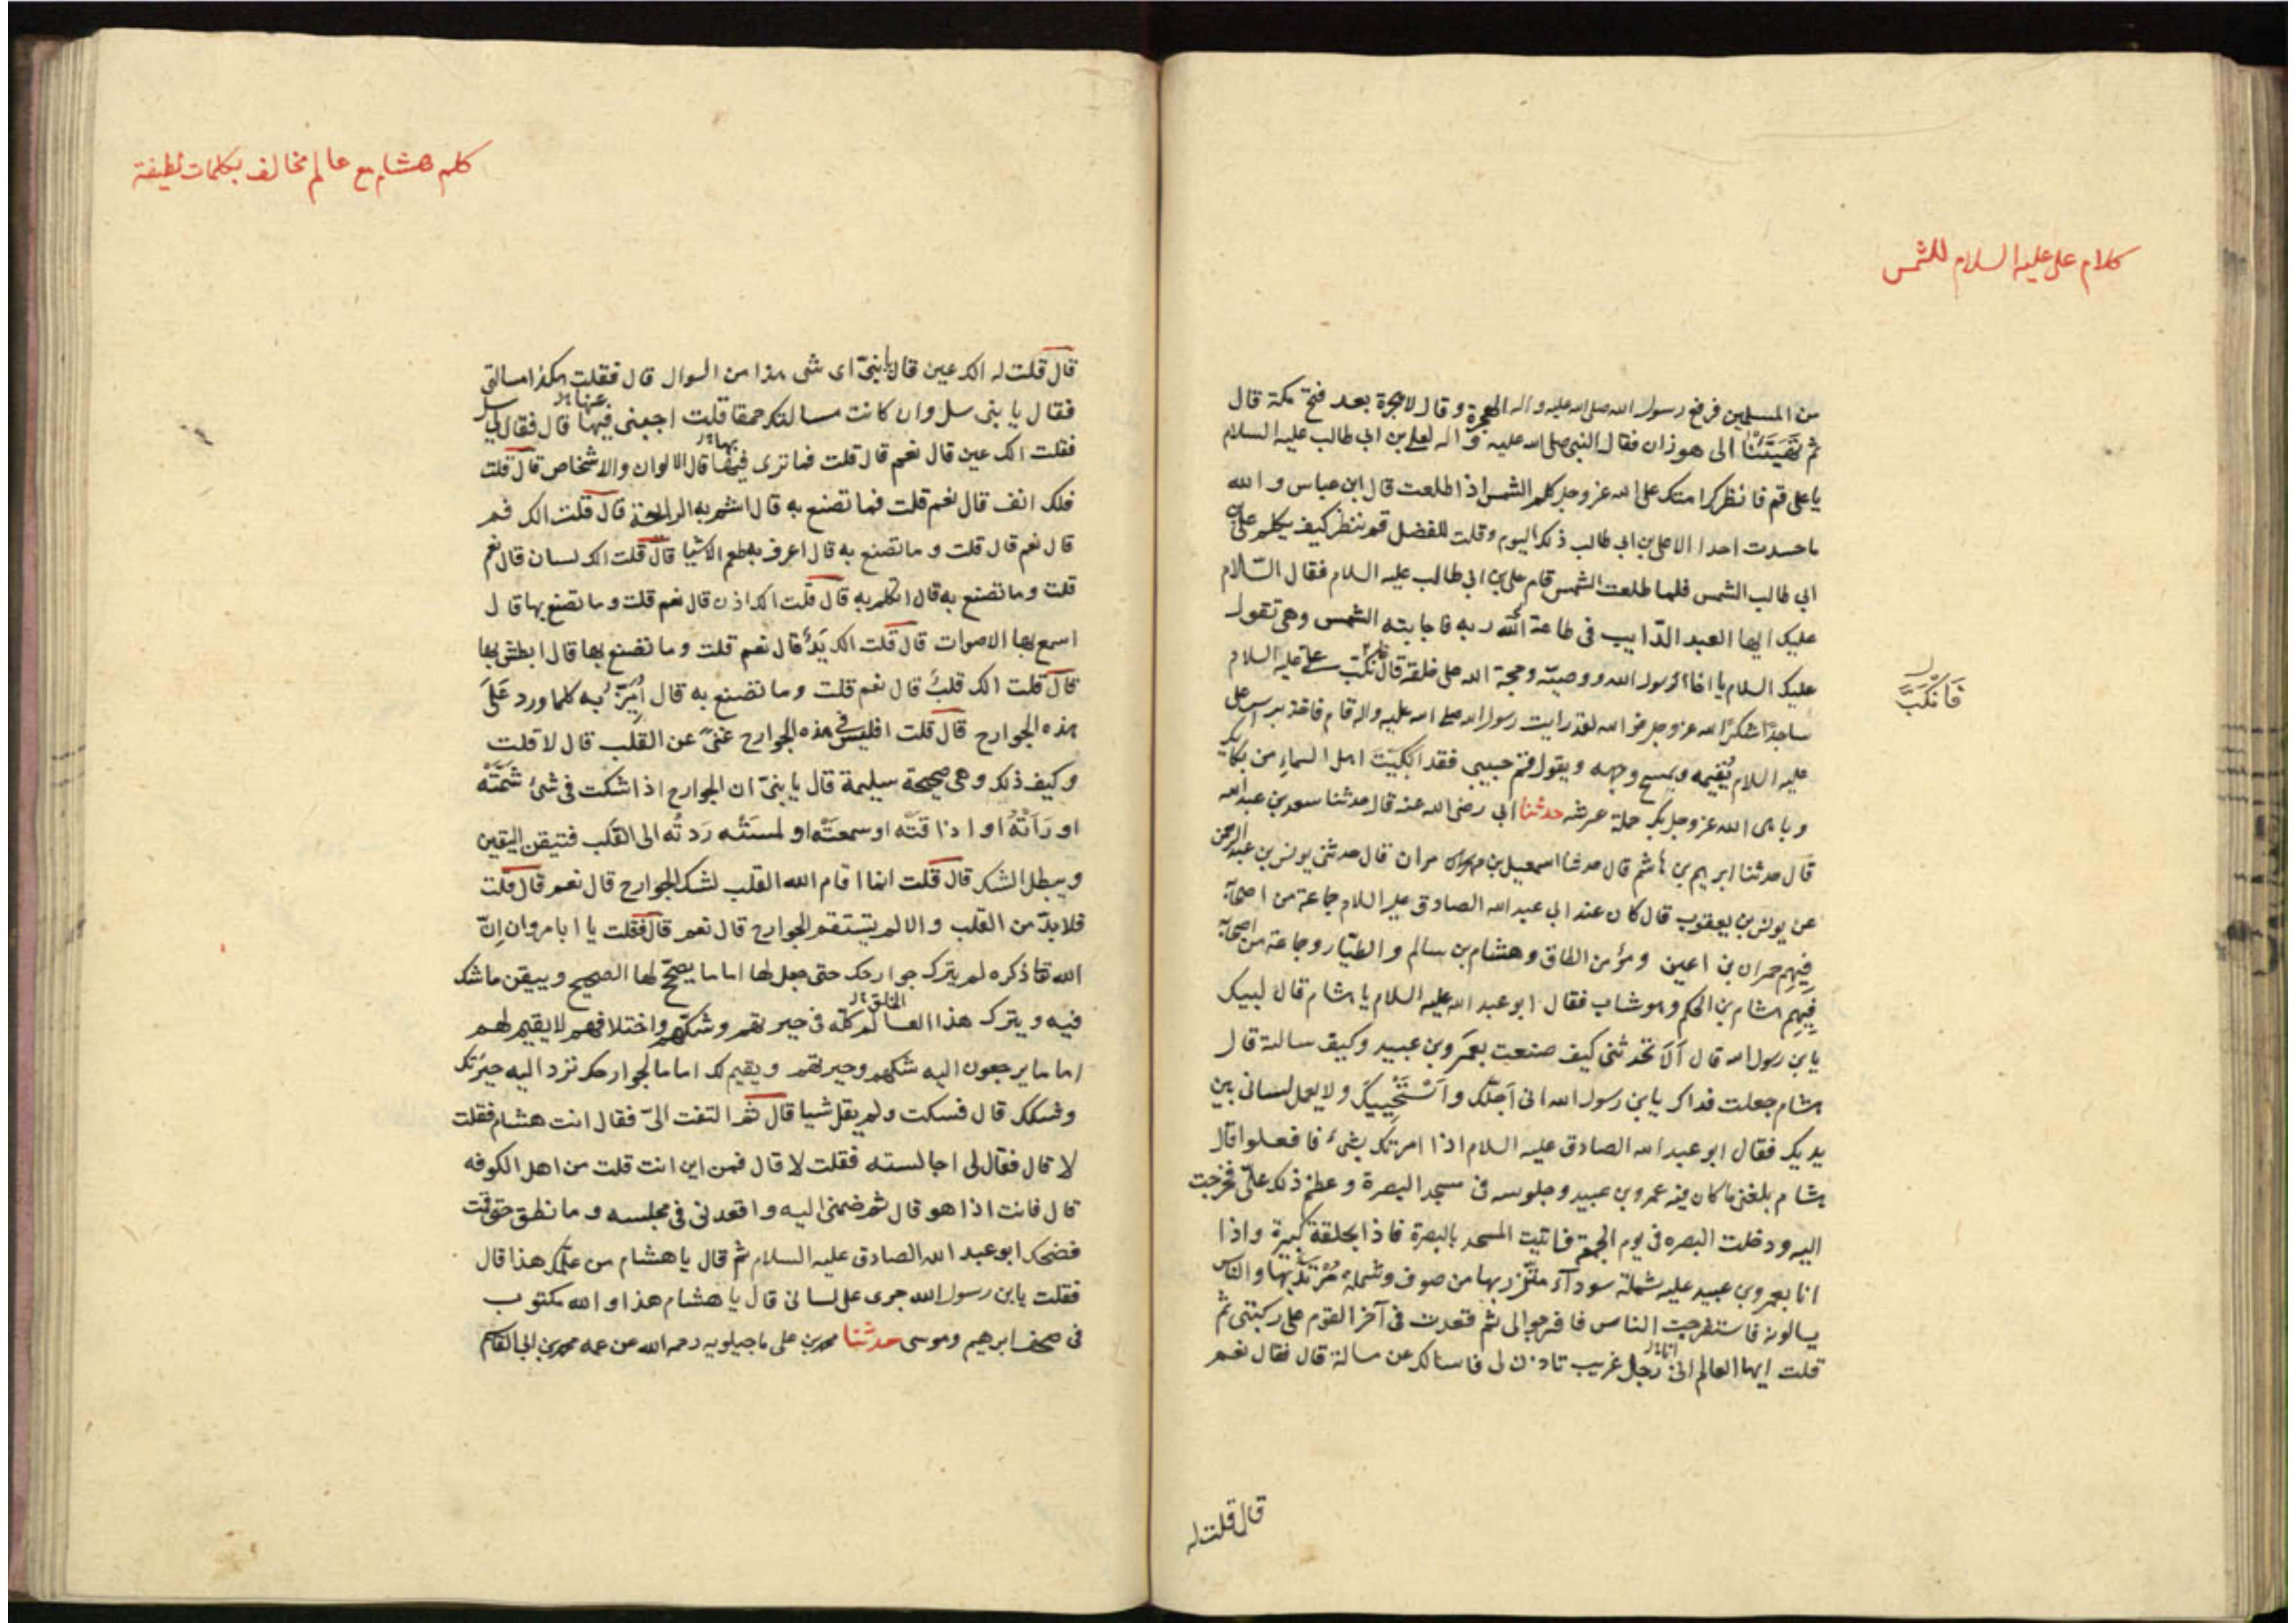 كلام على عليه السلام للشمس
من المسلمين فرفع رسول الله صلى الله عليه واله الهجرة وقال لا هجرة بعد فتح مكة قال
ثم الى هوزان فقال النبى صلى الله عليه واله لعلى بن ابى طالب عليه السلام
يا على قم فانظر كرامتك على الله عز وجل كلم الشمس اذا طلعت قال ابن عباس والله
ما حسدت احدا الا على بن ابى طالب ذلك اليوم وقلت للفضل قم ننظر كيف يكلم على بن
ابى طالب الشمس فلما طلعت الشمس قام على بن ابى طالب عليه السلام فقال السّلام
عليك ايها العبد الدّايب فى طاعة اللّه ربه فاجابته الشمس وهى تقول
عليك السلام يا اخا رسول الله ووصيّه وحجة الله على خلقه قال فانكبّ على عليه السلام
فَانكَبَّ
ساجدًا شكرًا لله عز وجل فو الله لقد رايت رسول الله صلى الله عليه واله قام فاخذ براس على
عليه السلام يُقيمه ويمسح وجهه ويقول قم حبيبى فقد اَبْكَيْتَ اهل السماء من بكائك
وباهى الله عز وجل بك حملة عرشه حدثنا ابى رضى الله عنه قال حدثنا سعد بن عبدالله
قال حدثنا ابرهيم بن هاشم قال حدثنا اسمعيل بن مرار قال حدثنى يونس بن عبد الرحمن
عن يونس بن يعقوب قال كان عند ابى عبد الله الصادق عليه السلام جماعة من اصحابه
فيهم حمران بن اعين ومؤمن الطاق وهشام بن سالم والطيّار وجماعة من اصحابه
فيهم هشام بن الحكم وهو شاب فقال ابو عبد الله عليه السلام يا هشام قال لبيك
يابن رسول الله قال اَلَا تحدثنى كيف صنعت بعمرو بن عبيد وكيف سالته قال
هشام جعلت فداك يابن رسول الله انى اَجلّك واَسْتَحْيِيكَ ولا يعمل لسانى بين
يديك فقال ابو عبد الله الصادق عليه السلام اذا امرتك بشئ فافعلوا قال
هشام بلغنى ما كان فيه عمرو بن عبيد وجلوسه فى مسجد البصرة وعظم ذلك علىّ فخرجت
اليه ودخلت البصره فى يوم الجمعة فاتيت المسجد بالبصرة فاذا بحلقة كبيرة واذا
انا بعمرو بن عبيد عليه شملة سودآء متّزر بها من صوف وشملة مُرْتَدٍ بها والناس
يسالونه فاستفرجت الناس فافرجوا لى ثم قعدت فى آخر القوم على ركبتى ثم
قلت ايها العالم انى رجل غريب تاذن لى فاسالك عن مسالة قال فقال نعم
قال قلت له
كلم هشام مع عالم مخالف بكلمات لطيفة
قال قلت له الك عين قال يا بنىّ اى شى هذا من السوال قال فقلت هكذا مسالتى
فقال يا بنى سل وان كانت مسالتك حمقا قلت اجبنى فيها قال فقال لى سل
فقلت الك عين قال نعم قال قلت فما ترى قال الالوان والاشخاص قال قلت
فلك انف قال نعم قلت فما تصنع به قال اشم به الرايحة قال قلت الك فم
قال نعم قال قلت وما تصنع به قال اعرف به طعم الاشيا قال قلت الك لسان قال نعم
قلت وما تصنع به قال اتكلم به قال قلت الك اذن قال نعم قلت وما تصنع بها قال
اسمع بها الاصوات قال قلت الك يَدٌ قال نعم قلت وما تصنع بها قال ابطش بها
قال قلت الك قلبٌ قال نعم قلت وما تصنع به قال اُمَيّزُ به كلما ورد عَلَى
هذه الجوارح قال قلت افليس فى هذه الجوارح غنىً عن القلب قال لا قلت
وكيف ذلك وهى صحيحة سليمة قال يا بنىّ ان الجوارح اذا شكت فى شئ شَمَّتْهُ
او رَاَتْهُ او ذاقَتْه او سمعَتْه او لمسَتْه رَدتْه الى القلب فتيقن اليقين
ويبطل الشك قال قلت انما اقام الله القلب لشك الجوارح قال نعم قال قلت
فلا بدّ من القلب والا لم يستقم الجوارح قال نعم قال فقلت يا ابا مروان اِنّ
الله تعا ذكره لم يترك جوارحك حتى جعل لها اماما يصحّح لها الصحيح وييقن ما شك
فيه ويترك هذا الخلق كلّه فى حيرتهم وشكّهم واختلافهم لا يقيم لهم
اماما يرجعون اليه شكهم وحيرتهم ويقيم لك اماما لجوارحك نزد اليه حيرَتك
وشكك قال فسكت ولم يقل شيا قال ثم التفت الىّ فقال انت هشام فقلت
لا قال فقال لى اجالسته فقلت لا قال فمن اين انت قلت من اهل الكوفه
قال فانت اذا هو قال ثم ضمنى اليه واقعدنى فى مجلسه وما نطق حتى قمت
فضحك ابو عبد الله الصادق عليه السلام ثم قال يا هشام من علّمك هذا قال
فقلت يابن رسول الله جرى على لسانى قال يا هشام هذا والله مكتوب
فى صحف ابرهيم وموسى حدثنا محمد بن على ماجيلويه رحمه الله عن عمه محمد بن ابى القاسم